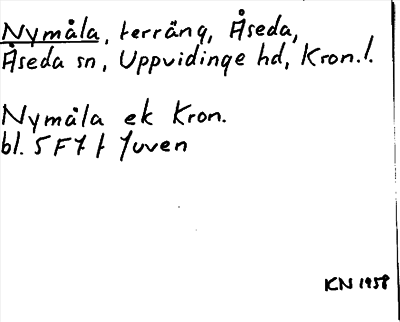 Nymåla, terräng, Åseda,
Åseda sn, Uppvidinge hd, Kron.l.
Nymåla ek Kron.
bl. 5 F 7 f Juven
KN 1958